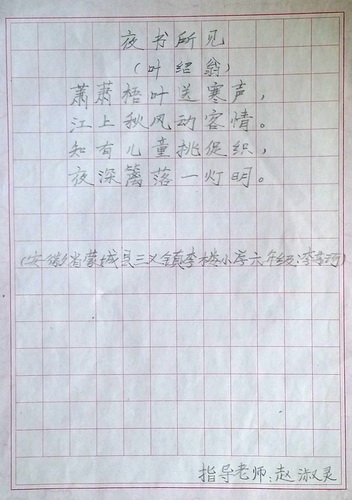 夜书所见
(叶绍翁)
萧萧梧叶送寒声,
江上秋风动客情。
知有儿童挑促织,
夜深篱落一灯明。
(安徽省蒙城县三义镇李楼小学六年级李
指导老师:赵淑灵